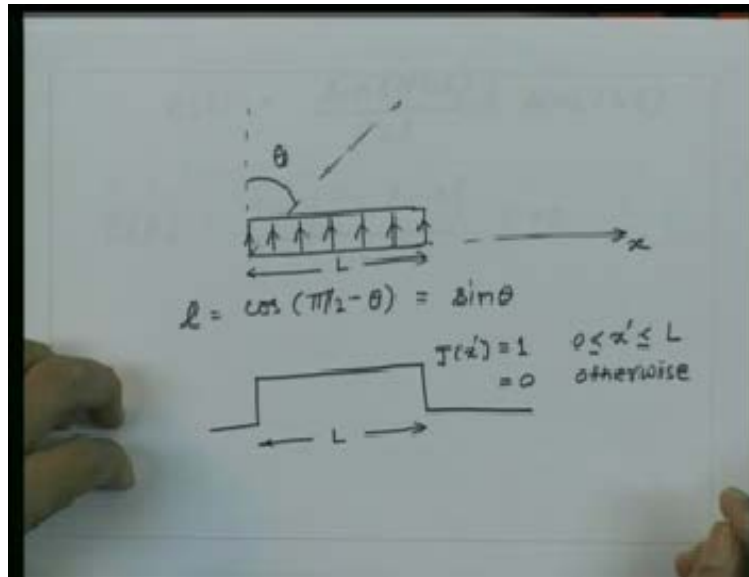 θ
x
L
l = cos (π/2 - θ) = sinθ
J(x') = 1 0 ≤ x' ≤ L
= 0 otherwise
L